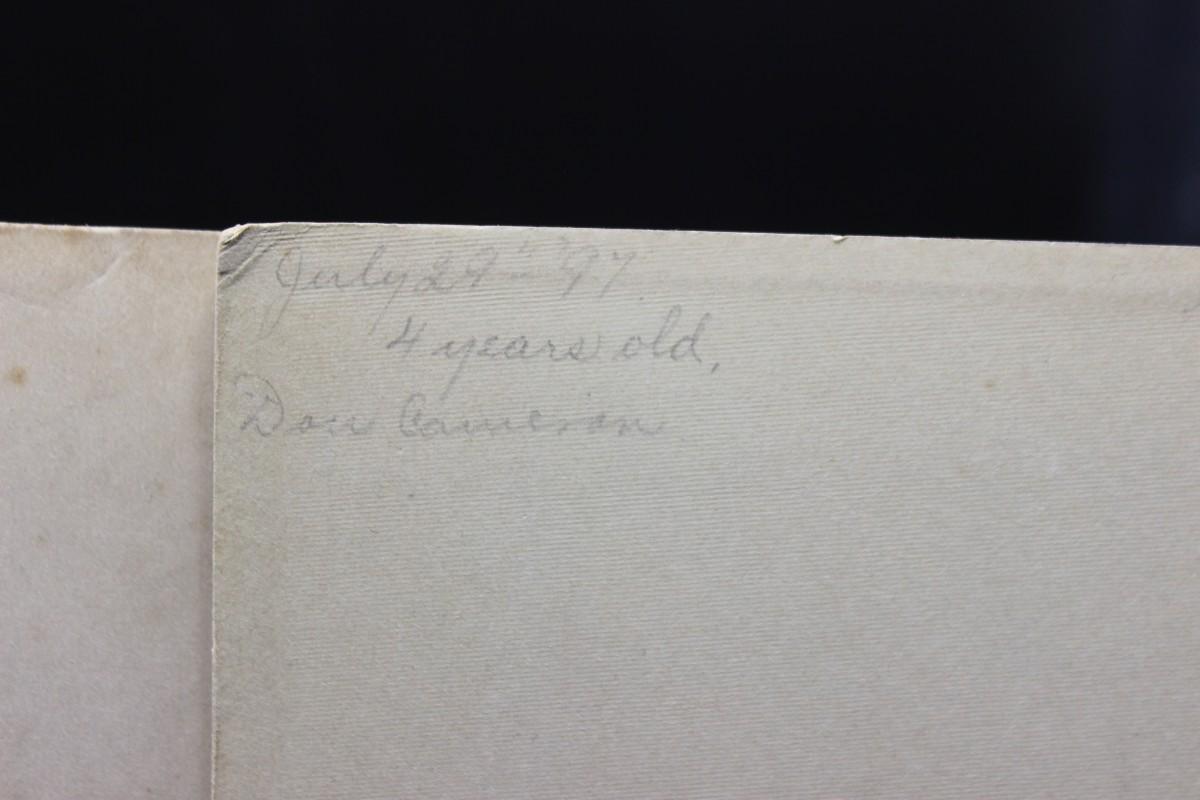 July 29th '97.
4 years old,
Don Cameron